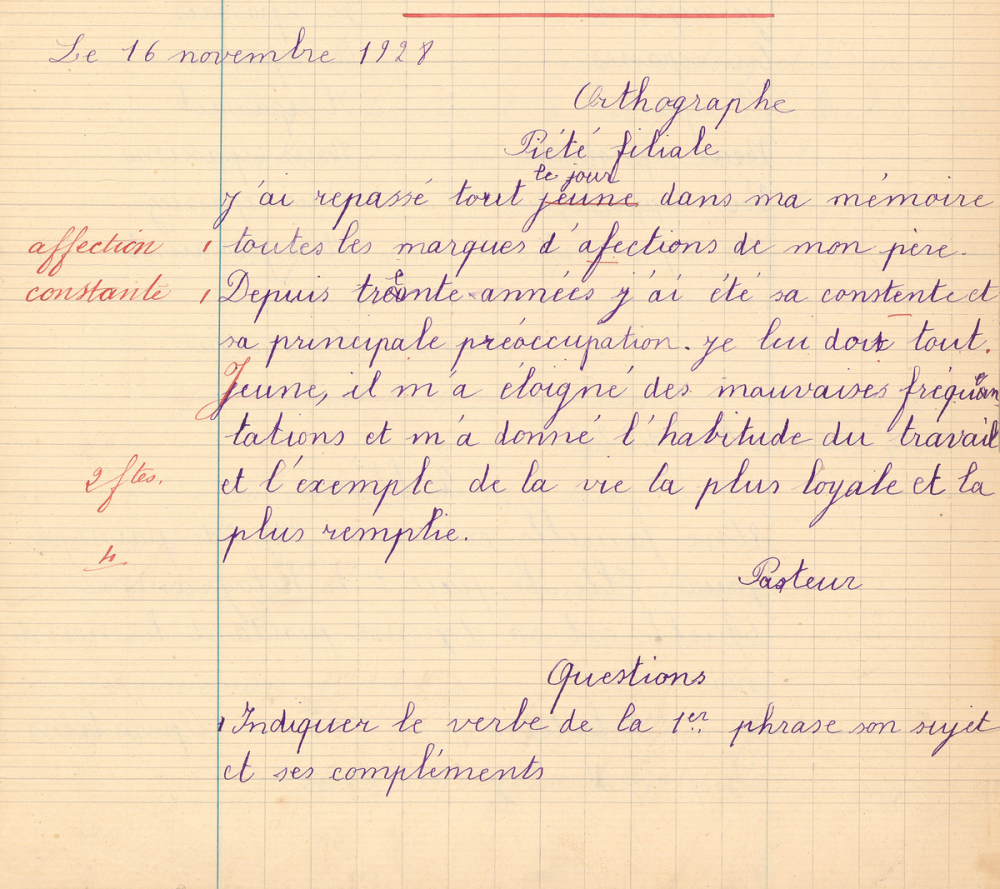 Le 16 novembre 1928
Orthographe
Piété filiale
le jour
J'ai repassé tout jeune dans ma mémoire
affection 1 toutes les marques d'afections de mon père.
constante 1 Depuis trente années j'ai été sa constente et
sa principale préoccupation. Je lui dois tout.
Jeune, il m'a éloigné des mauvaises fréquen
tations et m'a donné l'habitude du travail
2 ftes. et l'exemple de la vie la plus loyale et la
plus remplie.
4
Pasteur
Questions
1 Indiquer le verbe de la 1er phrase son sujet
et ses compléments